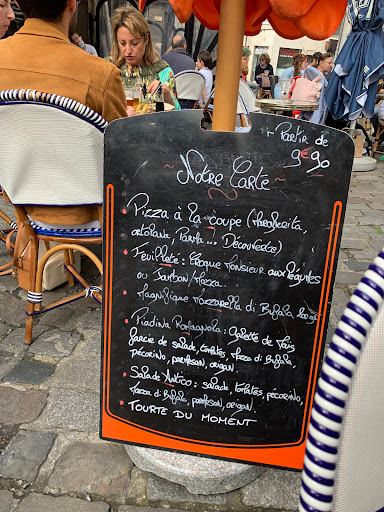 A Partir de
9€90
~ Notre Carte ~
Pizza à la coupe (Margherita,
ortolana, Parma... Découverte)
Feuilleté : Croque Monsieur aux légumes
ou Jambon/Mozza.
Magnifique Mozzarella di Bufala 200gr
Piadina Romagnola : Galette de Maïs
garcie de salade, tomates, Mozza di Bufala,
pécorino, parmesan, origan.
Salade Antico : salade, tomates, pécorino,
Mozza di Bufala, parmesan, origan.
TOURTE DU MOMENT